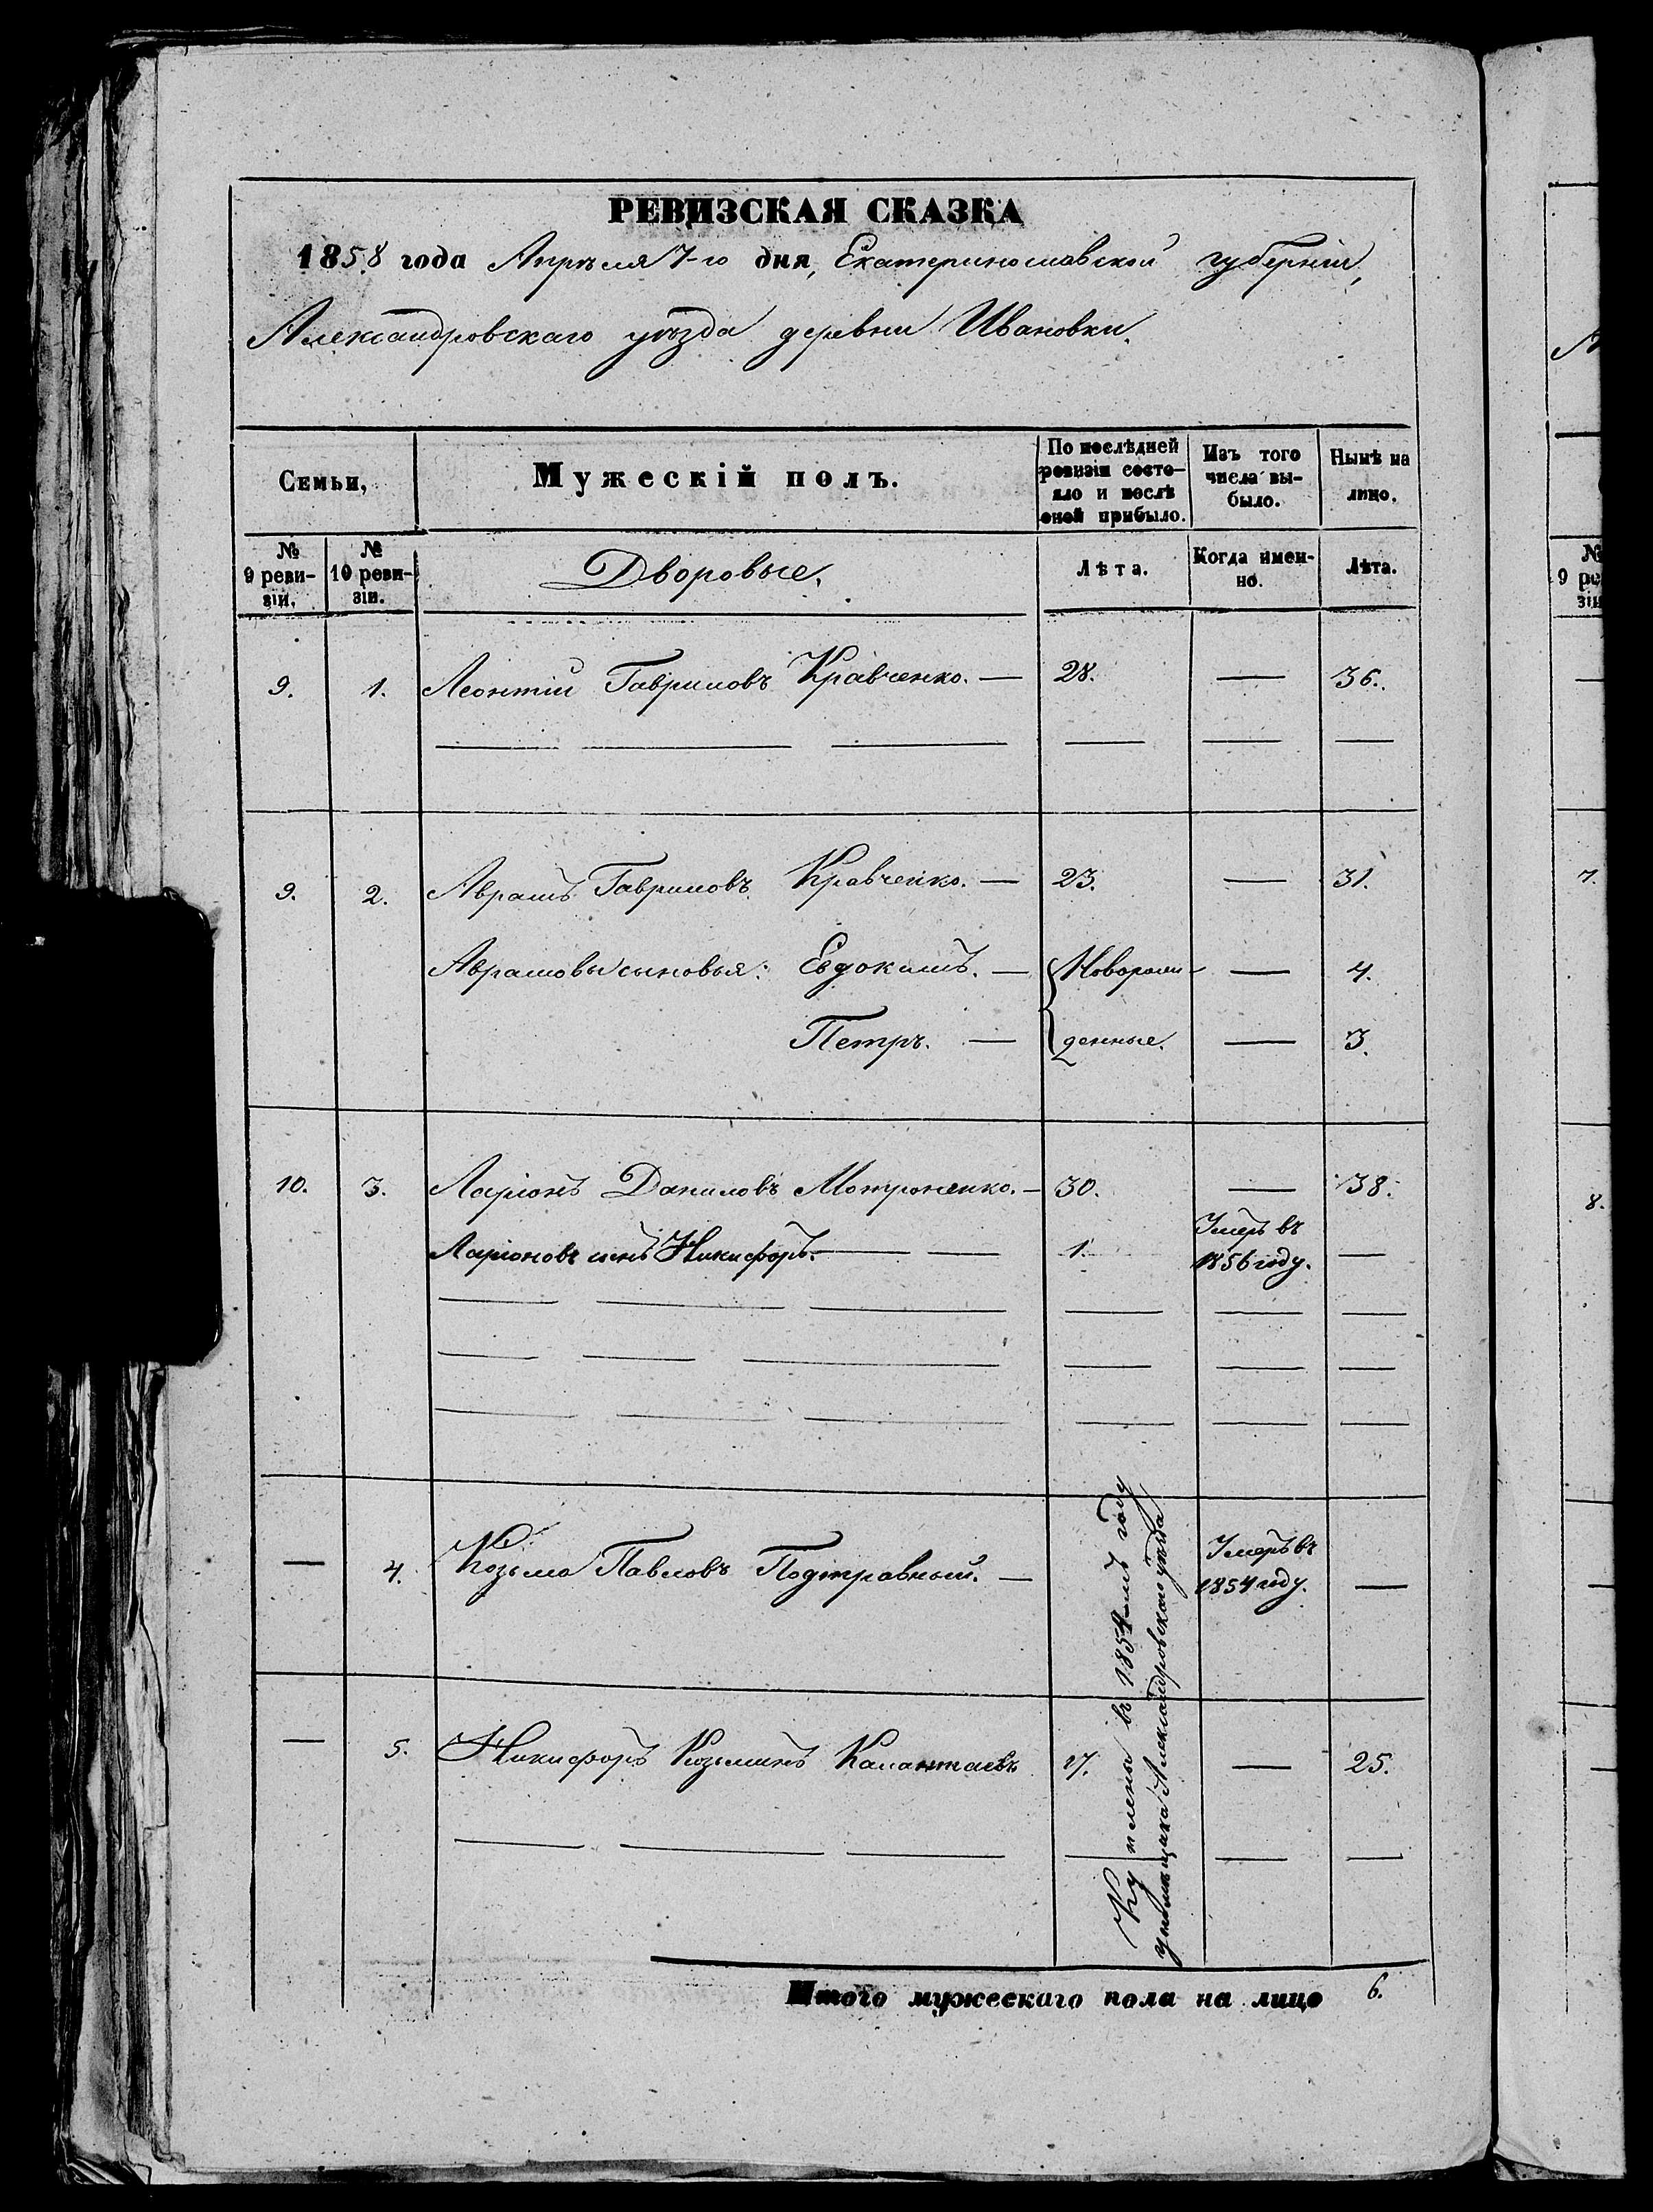 РЕВИЗСКАЯ СКАЗКА
1858 года Апрѣля 7-го дня, Екатеринославской губерніи,
Александровскаго уѣзда деревни Ивановки.
Семьи,
Мужескій полъ.
По послѣдней ревизіи состо-
яло и послѣ оной прибыло.
Изъ того числа вы-
было.
Нынѣ на лицо.
№ 9 реви-
зіи.
№ 10 реви-
зіи.
Дворовые.
Лѣта.
Когда имен-
но.
Лѣта.
9. 1. Леонтій Гавриловъ Кравченко. — 28. — 36.
9. 2. Аврамъ Гавриловъ Кравченко. — 23. — 31.
Аврамовы сыновья: Евдокимъ. — Новорож- — 4.
Петръ. — денные. — 3.
10. 3. Ларіонъ Даниловъ Мотроненко. — 30. — 38.
Ларіоновъ сынъ Никифоръ. — 1. Умеръ въ 1856 году. —
— 4. Козьма Павловъ Подтравный. — Умеръ въ 1854 году. —
— 5. Никифоръ Козьминъ Калантаевъ 17. — 25.
Куплены въ 1854-мъ году
у помѣщика Александровскаго уѣзда
Итого мужескаго пола на лицо 6.
№
9 ре
зіи
7.
8.